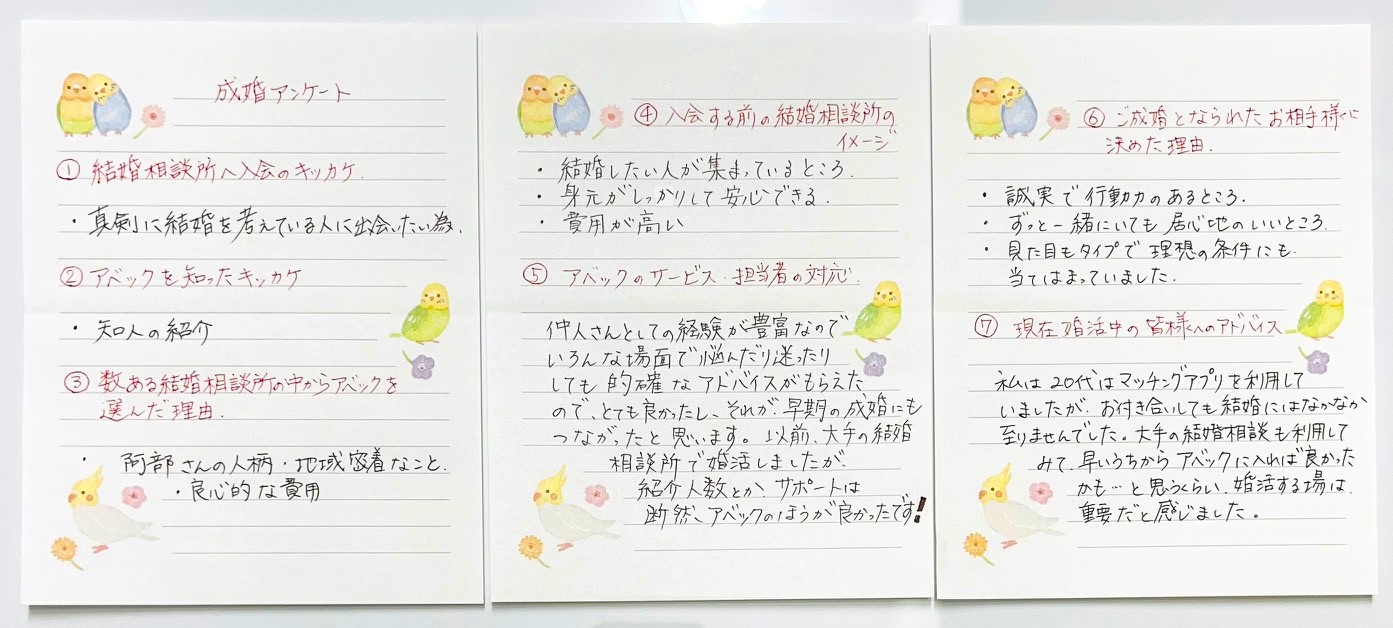 成婚アンケート
① 結婚相談所へ入会のキッカケ.
・真剣に結婚を考えている人に出会いたい為.
② アベックを知ったキッカケ
・知人の紹介
③ 数ある結婚相談所の中からアベックを
選んだ理由.
・阿部さんの人柄・地域密着なこと.
・良心的な費用
④ 入会する前の結婚相談所の
イメージ
・結婚したい人が集まっているところ.
・身元がしっかりして安心できる.
・費用が高い
⑤ アベックのサービス・担当者の対応.
仲人さんとしての経験が豊富なので
いろんな場面で悩んだり迷ったり
しても的確なアドバイスがもらえた
ので、とても良かったし、それが、早期の成婚にも
つながったと思います。以前、大手の結婚
相談所で婚活しましたが、
紹介人数とか、サポートは
断然、アベックのほうが良かったです!
⑥ ご成婚となられたお相手様に
決めた理由.
・誠実で行動力のあるところ.
・ずっと一緒にいても居心地のいいところ.
・見た目もタイプで理想の条件にも.
当てはまっていました.
⑦ 現在婚活中の皆様へのアドバイス
私は20代はマッチングアプリを利用して
いましたが、お付き合いしても結婚にはなかなか
至りませんでした。大手の結婚相談も利用して
みて、早いうちからアベックに入れば良かった
かも…と思うくらい、婚活する場は、
重要だと感じました。